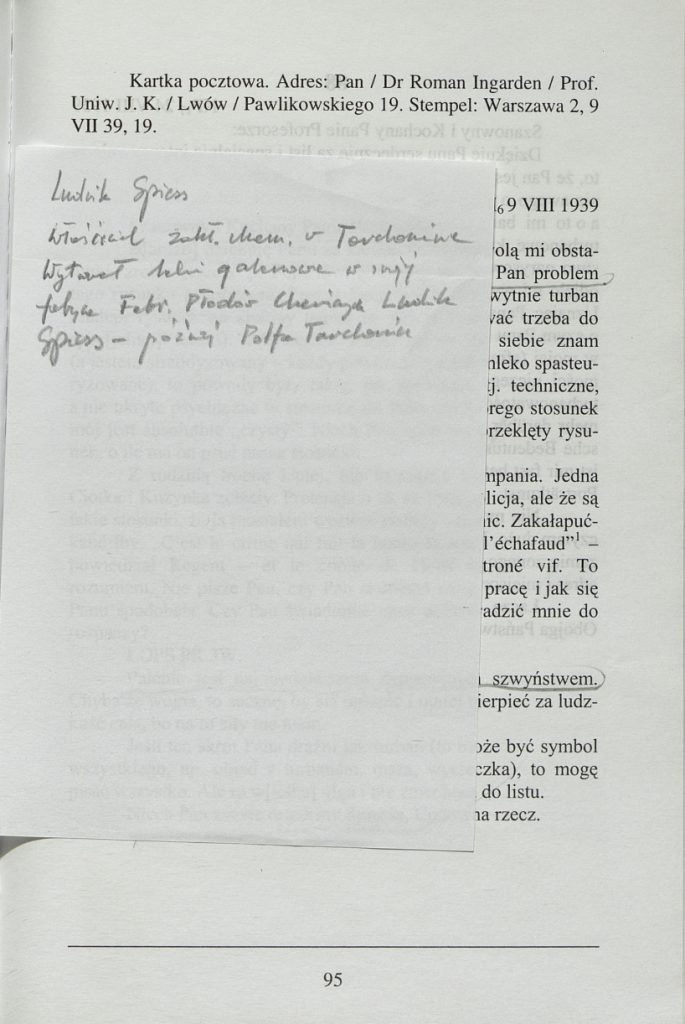 Kartka pocztowa. Adres: Pan / Dr Roman Ingarden / Prof.
Uniw. J. K. / Lwów / Pawlikowskiego 19. Stempel: Warszawa 2, 9
VII 39, 19.
Ludwik Spiess
właściciel zakł. chem. w Tarchominie
wytwarzał leki galenowe w swojej
fabryce Fabr. Płodów Ludwik
Spiess – później Polfa Tarchomin
9 VIII 1939
olą mi obsta-
Pan problem
wytnie turban
wać trzeba do
siebie znam
mleko spasteu-
tj. techniczne,
rego stosunek
rzeklęty rysu-
mpania. Jedna
licja, ale że są
nic. Zakałapuć-
l'échafaud"¹ –
troné vif. To
pracę i jak się
adzić mnie do
szwyństwem.
ierpieć za ludz-
oże być symbol
czka), to mogę
do listu.
na rzecz.
95